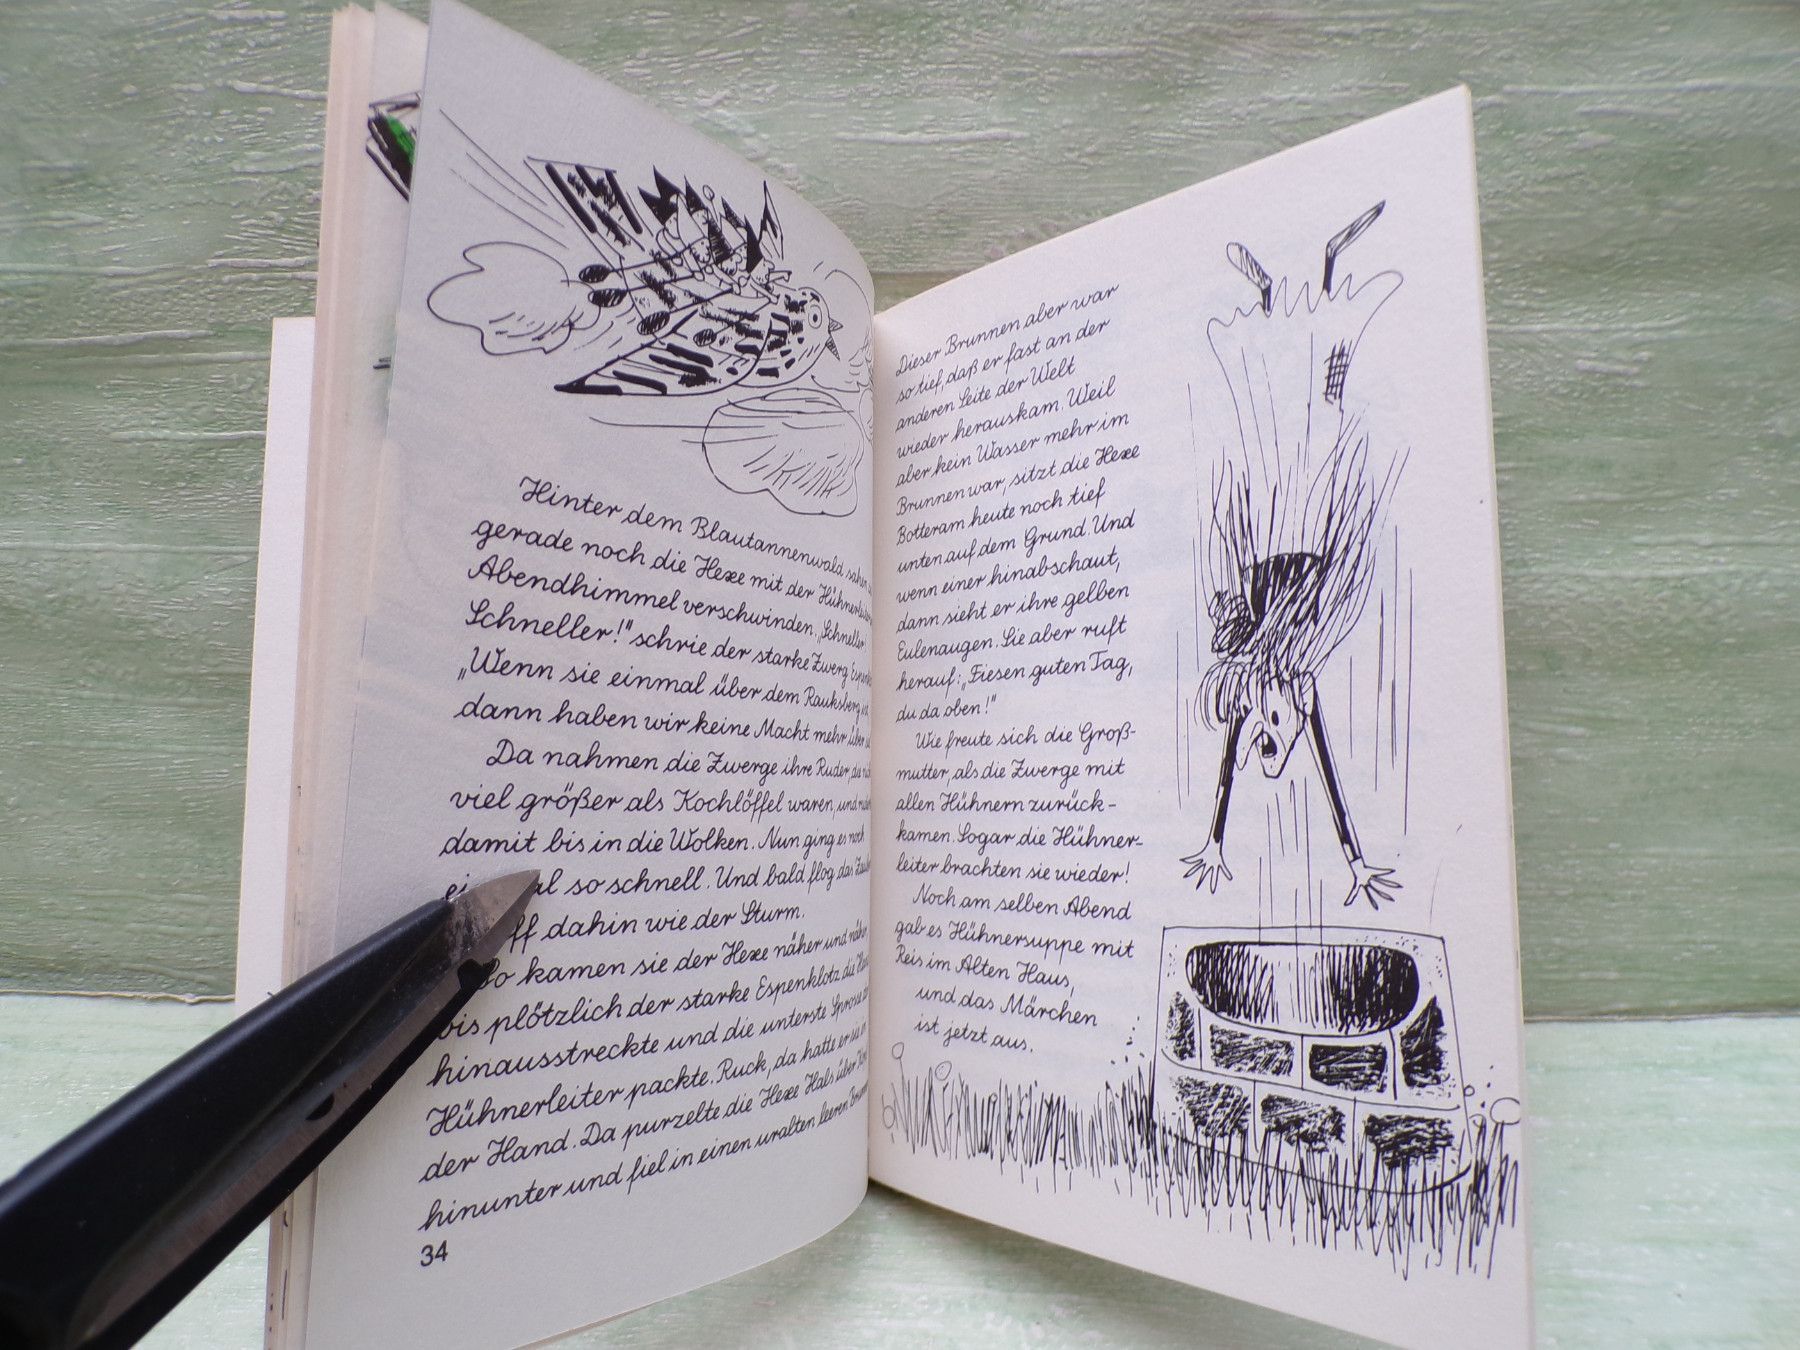 Hinter dem Blautannenwald sahen
gerade noch die Hexe mit der Hühnerleiter
Abendhimmel verschwinden. „Schneller!
Schneller!" schrie der starke Zwerg
„Wenn sie einmal über dem Rauksberg
dann haben wir keine Macht mehr über
Da nahmen die Zwerge ihre Ruder, die
viel größer als Kochlöffel waren, und
damit bis in die Wolken. Nun ging es noch
so schnell. Und bald flog das
dahin wie der Sturm.
So kamen sie der Hexe näher und näher
bis plötzlich der starke Espenklotz die
hinausstreckte und die unterste Sprosse
Hühnerleiter packte. Ruck, da hatte er sie in
der Hand. Da purzelte die Hexe Hals über
hinunter und fiel in einen uralten leeren
34
Dieser Brunnen aber war
so tief, daß er fast an der
anderen Seite der Welt
wieder herauskam. Weil
aber kein Wasser mehr im
Brunnen war, sitzt die Hexe
Botteram heute noch tief
unten auf dem Grund. Und
wenn einer hinabschaut,
dann sieht er ihre gelben
Eulenaugen. Sie aber ruft
herauf: „Fiesen guten Tag,
du da oben!"
Wie freute sich die Groß-
mutter, als die Zwerge mit
allen Hühnern zurück-
kamen. Sogar die Hühner-
leiter brachten sie wieder!
Noch am selben Abend
gab es Hühnersuppe mit
Reis im Alten Haus,
und das Märchen
ist jetzt aus.